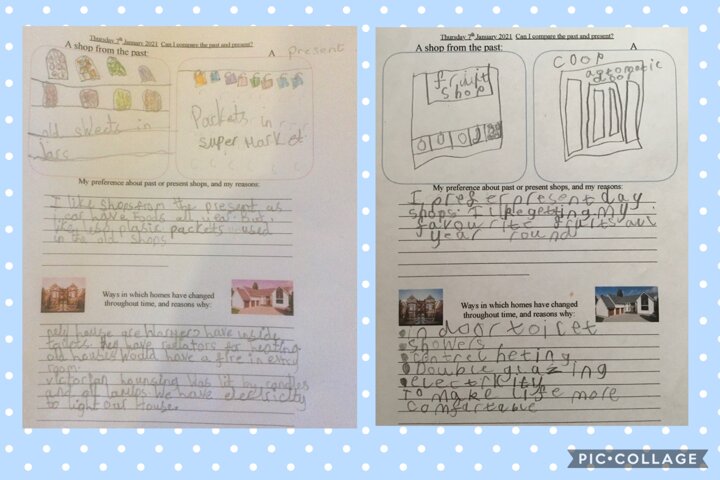 Thursday 7th January 2021 Can I compare the past and present?
A shop from the past:
A
Present
old sweets in
Jars
Packets in
super Market
My preference about past or present shops, and my reasons:
I like shops from the present as
I can have foods all year. But I
like less plasic packets used
in the old shops
Ways in which homes have changed
throughout time, and reasons why:
new house are have inside
toilets. they have radiators for heating
old houses would have a fire in every
room.
victorian hounsing was lit by candles
and oil lamps we have electricity
to light our house.
Thursday 7th January 2021 Can I compare the past and present?
A shop from the past:
A
fruit
shop
coop
automatic
door
My preference about past or present shops, and my reasons:
I prefer present day
shops. I like getting my
favourite fruits all
year round
Ways in which homes have changed
throughout time, and reasons why:
in door toilet
showers
centrel heting
Double glazing
electricity
To make life more
comfortable
PIC•COLLAGE